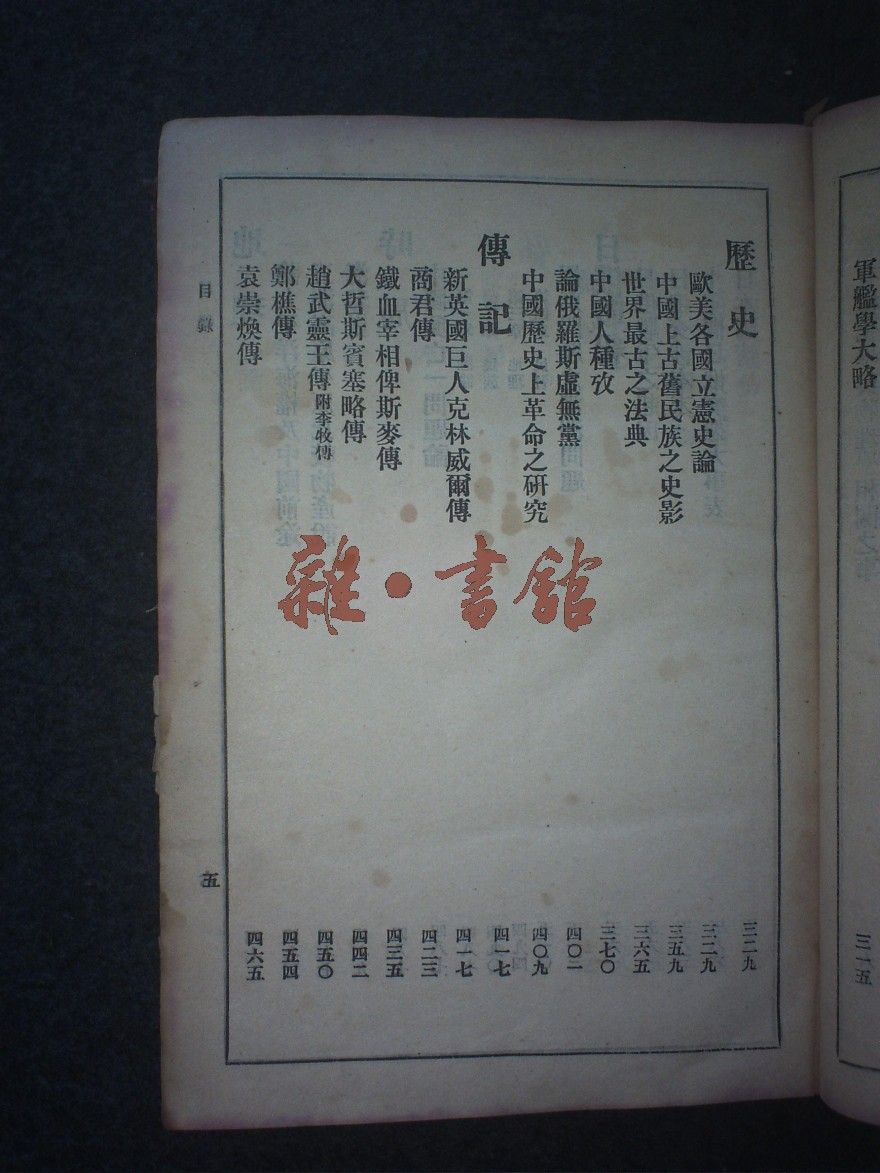 軍艦學大略 三一五
歷史 三二九
歐美各國立憲史論 三二九
中國上古舊民族之史影 三五九
世界最古之法典 三六五
中國人種攷 三七〇
論俄羅斯虛無黨 四〇一
中國歷史上革命之研究 四〇九
傳記 四一七
新英國巨人克林威爾傳 四一七
商君傳 四二三
鐵血宰相俾斯麥傳 四三五
大哲斯賓塞略傳 四四二
趙武靈王傳附李牧傳 四五〇
鄭樵傳 四五四
袁崇煥傳 四六五
目錄 五
雜·書館